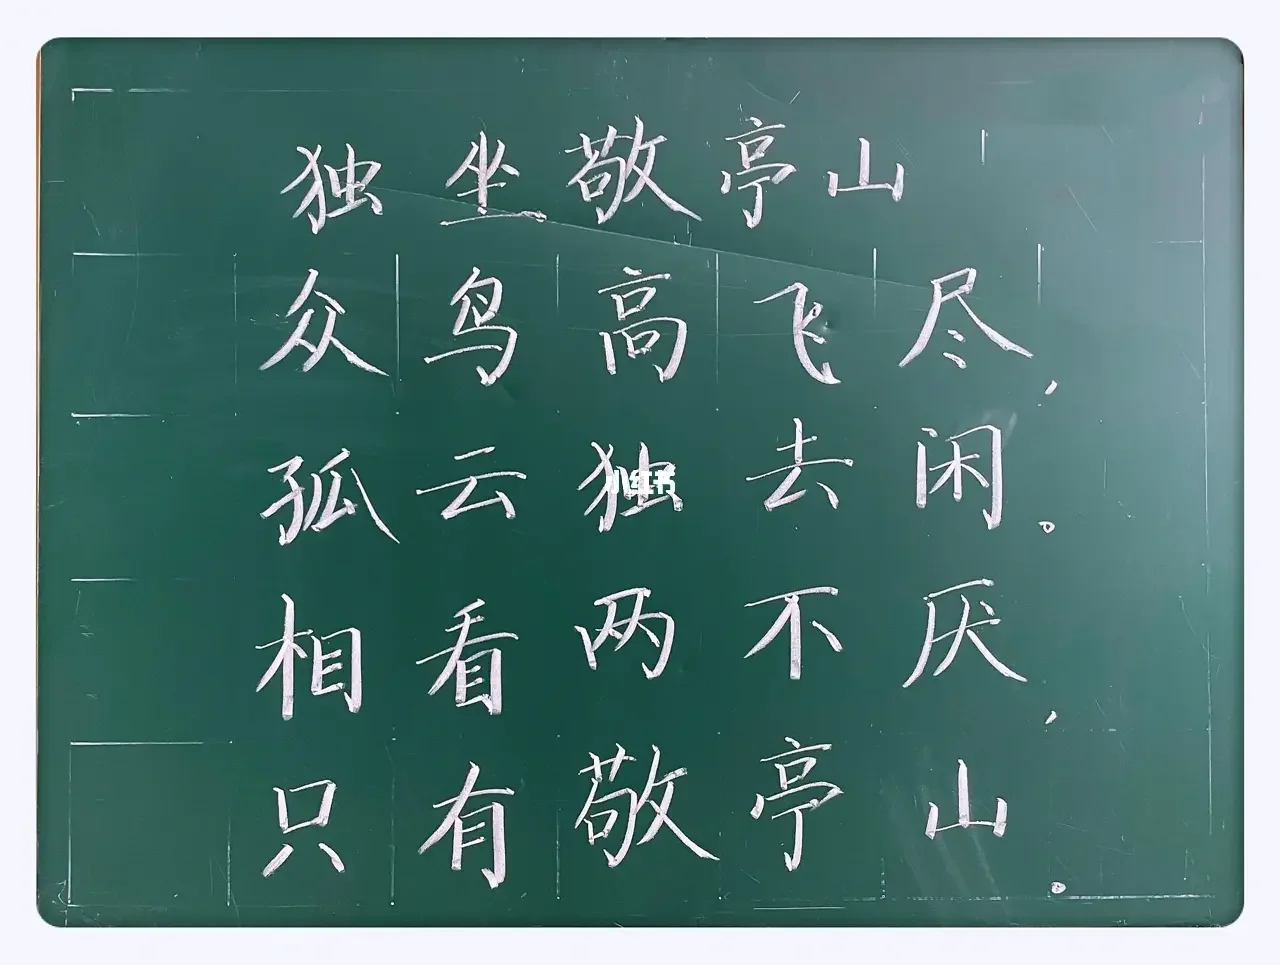 独坐敬亭山
众鸟高飞尽，
孤云独去闲。
相看两不厌，
只有敬亭山。
小红书